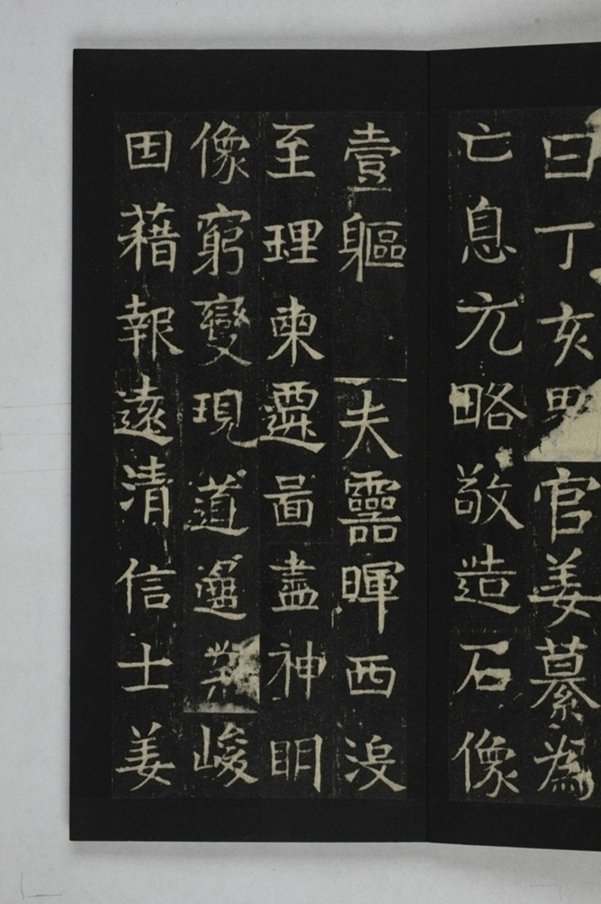 日丁亥官姜纂為
亡息元略敬造石像
壹軀　夫靈暉西沒
至理東遷啚盡神明
像窮變現道邈峻
因藉報遠清信士姜